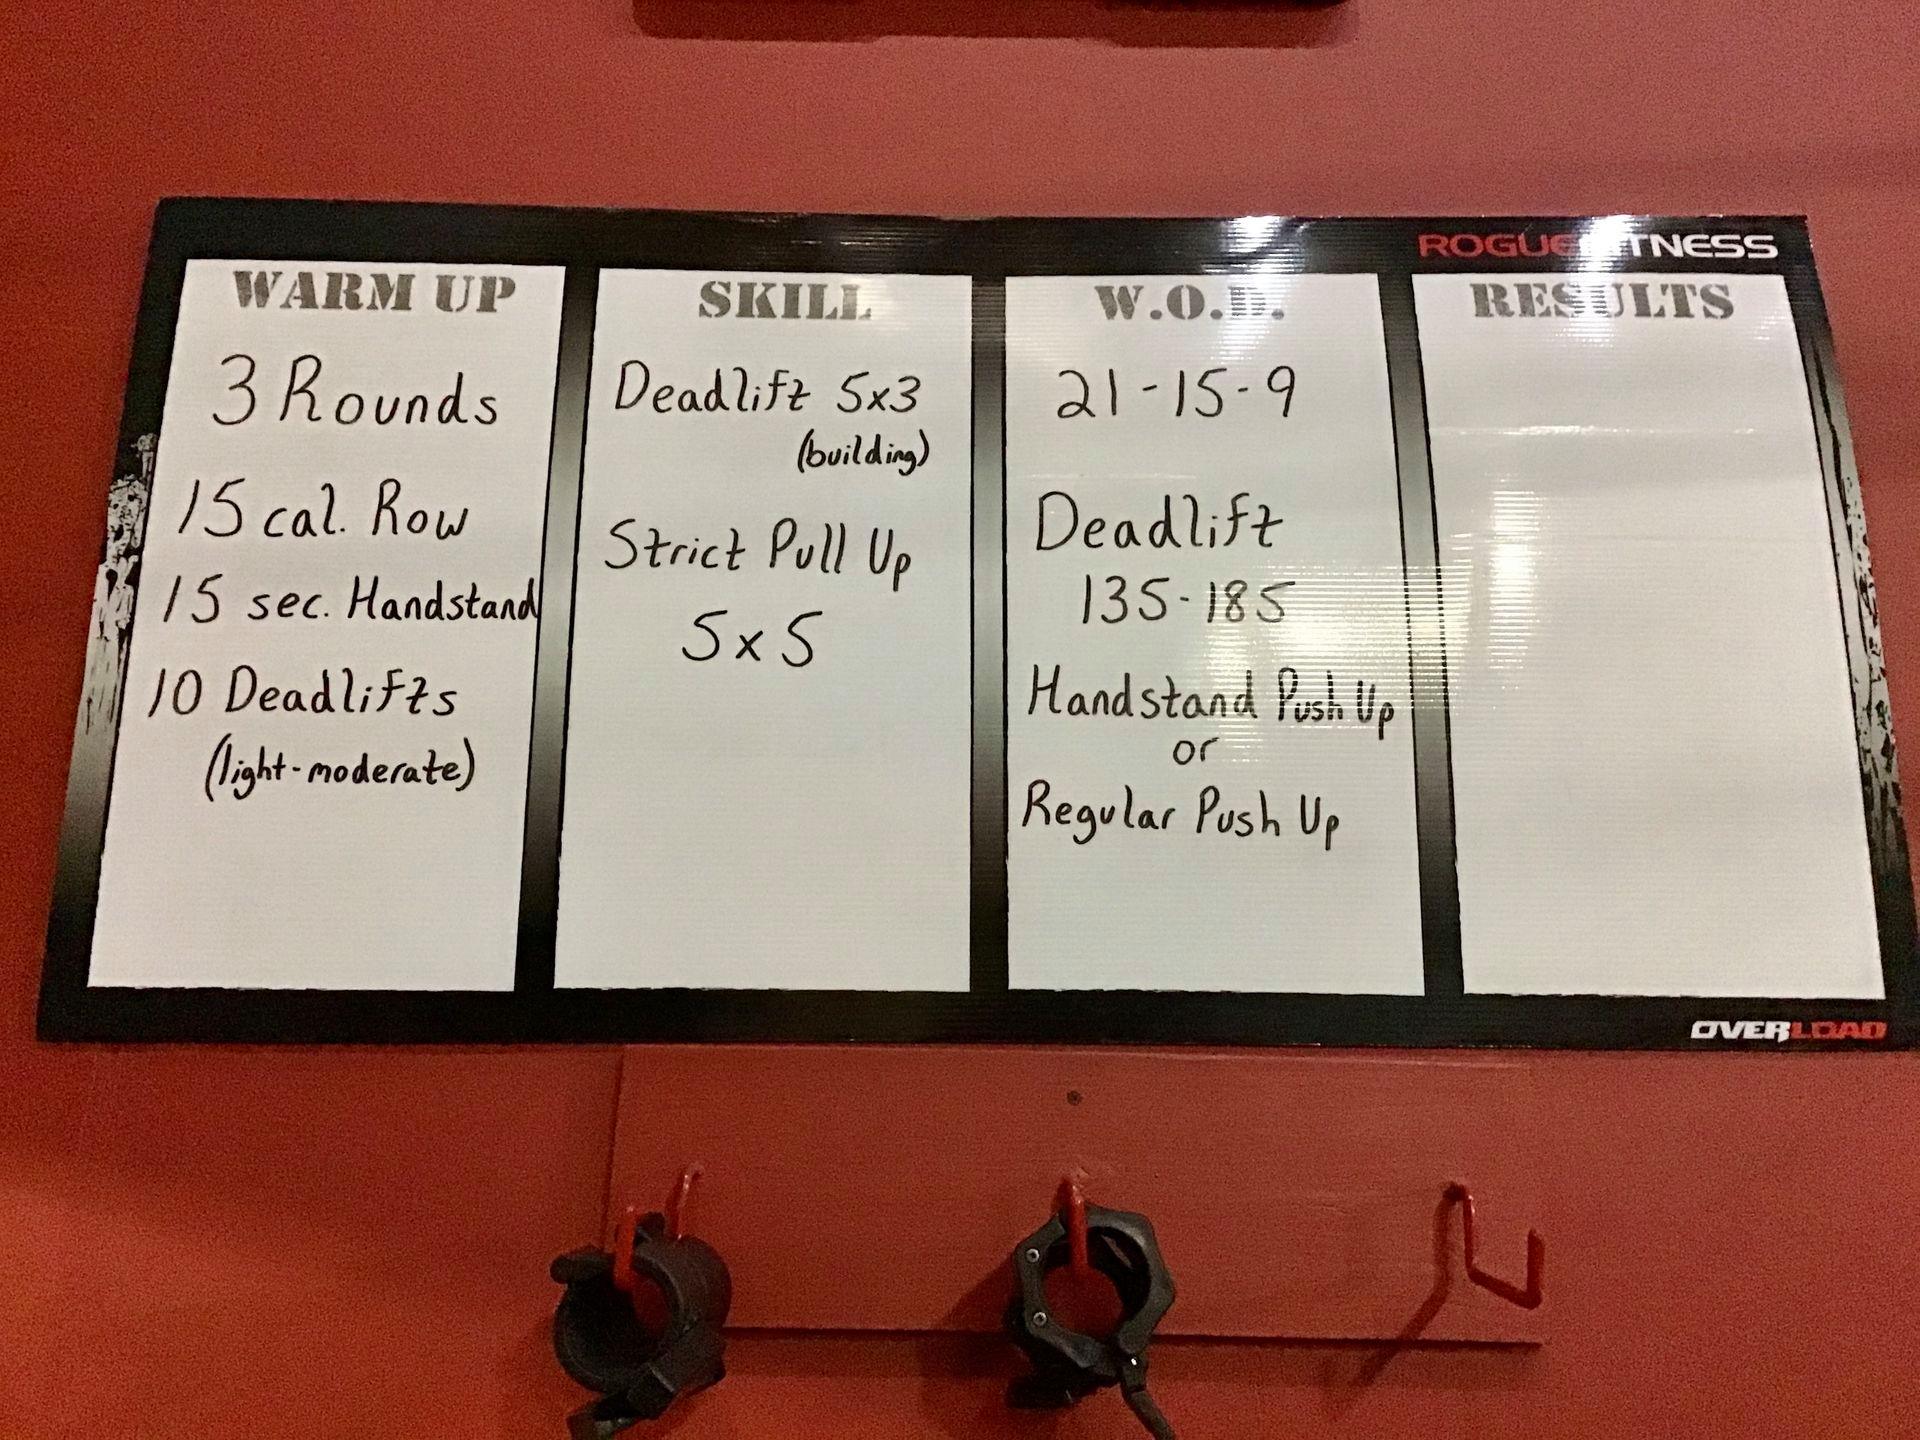 ROGUE FITNESS
WARM UP
3 Rounds
15 cal. Row
15 sec. Handstand
10 Deadlifts
(light-moderate)
SKILL
Deadlift 5x3
(building)
Strict Pull Up
5x5
W.O.D.
21-15-9
Deadlift
135-185
Handstand Push Up
or
Regular Push Up
RESULTS
OVERLOAD